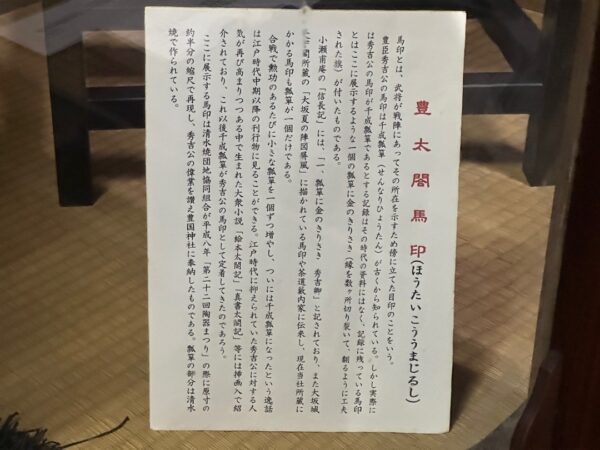 豊太閤馬印(ほうたいこううまじるし)
馬印とは、武将が戦陣にあってその所在を示すため傍に立てた目印のことをいう。
豊臣秀吉公の馬印は千成瓢箪(せんなりひょうたん)が古くから知られている。しかし実際に
は秀吉公の馬印が千成瓢箪であるとする記録はその時代の資料にはなく、記録に残っている馬印
とはここに展示するような一個の瓢箪に金のきりさき(縁を数ヶ所切り裂いて、翻るように工夫
された旗)が付いたものである。
小瀬甫庵の「信長記」には、「一、瓢箪に金のきりさき 秀吉卿」と記されており、また大坂城
天守閣所蔵の「大坂夏の陣図屏風」に描かれている馬印や茶道薮内家に伝来し、現在当社所蔵に
かかる馬印も瓢箪が一個だけである。
合戦で勲功のあるたびに小さな瓢箪を一個ずつ増やし、ついには千成瓢箪になったという逸話
は江戸時代中期以降の刊行物に見ることができる。江戸時代に抑えられていた秀吉公に対する人
気が再び高まりつつある中で生まれた大衆小説「絵本太閤記」「真書太閤記」等には挿画入で紹
介されており、これ以後千成瓢箪が秀吉公の馬印として定着してきたのであろう。
ここに展示する馬印は清水焼団地協同組合が平成八年「第二十二回陶器まつり」の際に原寸の
約半分の縮尺で再現し、秀吉公の偉業を讃え豊国神社に奉納したものである。瓢箪の部分は清水
焼で作られている。